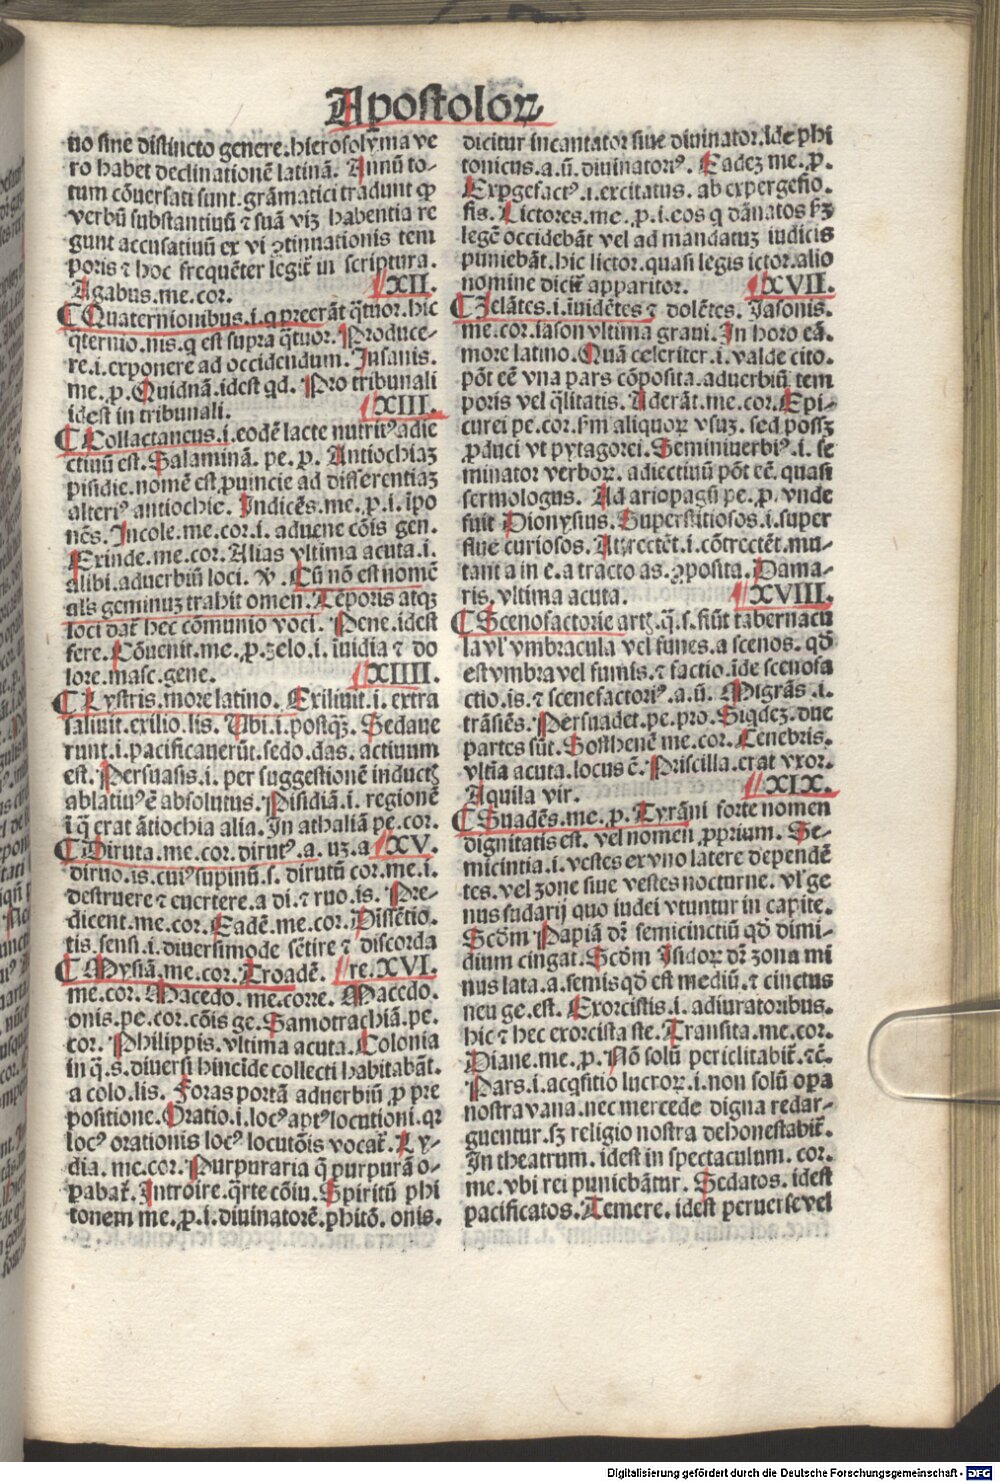 Apostoloꝝ
no ſine diſtincto genere.hieroſolyma ve
ro habet declinationē latinā. Annū to-
tum cōuerſati ſunt.grāmatici tradunt ꝙ
verbū ſubſtantiuū ⁊ ſuā viꝫ habentia re
gunt accuſatiuū ex vi ꝯtinnationis tem
poris ⁊ hoc frequēter legiť in ſcriptura.
Agabus.me.cor. XII.
Quaternionibus.i.q preerāt q̈tuor.hic
q̈ternio.nis.q eſt ſupra q̈tuor. Produce-
re.i.exponere ad occidendum. Inſanis.
me.ꝑ.Quidnā.ideſt qd. Pro tribunali
ideſt in tribunali. XIII.
Collactaneus.i.eodē lacte nutritꝰ adie
ctiuū eſt.Salaminā. pe.ꝓ. Antiochiaꝫ
piſidie.nomē eſt ꝓuincie ad differentiaꝫ
alteriꝰ antiochie. Indicēs.me.ꝓ.i.īpo
nēs.Incole.me.cor.i.aduene cōis gen.
Exinde.me.cor.Alias vltima acuta.i.
alibi.aduerbiū loci. ꝟ. Cū nō eſt nomē
als geminuꝫ trahit omen.Tēporis atqꝫ
loci dať hec cōmunio voci. Pene.ideſt
fere.Cōuenit.me.ꝓ.zelo.i.iuidia ⁊ do
lore.maſc.gene. XIIII.
Lyſtris.more latino. Exiliuit.i.extra
ſaliuit.exilio.lis. Ubi.i.poſtqꝫ. Sedaue
runt.i.pacificauerūt.ſedo.das.actiuum
eſt. Perſuaſis.i. per ſuggeſtionē inductꝭ
ablatiuꝰ ē abſolutus.Piſidiā.i.regionē
i q̄ erat ātiochia alia.In athaliā pe.cor.
Diruta.me.cor.dirutꝰ.a.uꝫ.a XV.
diruo.is.cuiꝰ ſupinū.ſ.dirutū cor.me.i.
deſtruere ⁊ euertere.a di.⁊ ruo.is. Pre-
dicent.me.cor.Eadē.me.cor.Diſſētio-
tis.ſenſi.i.diuerſimode ſētire ⁊ diſcorda
Myſiā.me.cor.Troadē. re.XVI.
me.cor.Macedo.me.corre. Macedo.
onis.pe.cor.cōis ge.Samotrachiā.pe.
cor. Philippis.vltima acuta.Colonia
in q̄.ſ.diuerſi hincide collecti habitabāt.
a colo.lis. Foras portā aduerbiū ꝓ pre
poſitione.Oratio.i.locꝰ aptꝰ locutioni.qr
locꝰ orationis locꝰ locutōis vocať. Ly-
dia.me.cor.Purpuraria q̄ purpurā o-
pabať.Introire.q̈rte cōiu.Spiritū phi
tonem me.ꝓ.i.diuinatorē.phitō.onis.
dicitur incantator ſiue diuinator.īde phi
tonicus.a.ū.diuinatorꝰ. Eadeꝫ me.ꝓ.
Expgefactꝰ.i.excitatus. ab expergefio.
fis. Lictores.me.ꝓ.i.eos q dānatos ẜꝫ
legē occidebāt vel ad mandatuꝫ iudicis
puniebāt.hic lictor.quaſi legis ictor.alio
nomine diciť apparitor. XVII.
Zelātes.i.īuidētes ⁊ dolētes. Iaſonis.
me.cor.iaſon vltima graui.In horo eā.
more latino.Quā celeriter.i.valde cito.
pōt eē vna pars cōpoſita.aduerbiū tem
poris vel q̈litatis. Aderāt.me.cor.Epi-
curei pe.cor.ẜm aliquoꝝ vſuꝫ. ſed poſſꝫ
ꝓduci vt pytagorei. Seminiuerbiꝰ.i.ſe
minator verboꝝ.adiectiuū pōt eē.quaſi
ſermologus. Ad ariopagū pe.ꝓ.vnde
fuit Dionyſius. Superſtitioſos.i.ſuper
flue curioſos.Attrectēt.i.cōtrectēt.mu-
tant a in e.a tracto as.ꝯpoſita.Dama-
ris.vltima acuta. XVIII.
Scenofactorie artꝭ.q̄.ſ.fiūt tabernacu
la vľ vmbracula vel funes.a ſcenos. qđ
eſt vmbra vel fumis.⁊ factio.īde ſcenofa
ctio.is.⁊ ſcenefactoriꝰ.a.ū. Migrās.i.
trāſiēs. Perſuadet.pe.pro.Siqdeꝫ.due
partes ſūt.Soſthenē me.cor.Cenebris.
vltīa acuta.locus ē. Priſcilla.erat vxor.
Aquila vir. XIX.
Suadēs.me.ꝓ.Tyrāni forte nomen
dignitatis eſt.vel nomen ꝓprium. Se-
micintia.i.veſtes ex vno latere dependē
tes.vel zone ſiue veſtes nocturne. vľ ge
nus ſudarij quo iudei vtuntur in capite.
Scđm Papiā dꝛ̄ ſemicinctiū qđ dimi-
dium cingat.Scđm Iſidoꝝ dꝛ̄ zona mi
nus lata.a ſemis qđ eſt mediū.⁊ cinctus
neu ge.eſt. Exorciſtis.i.adiuratoribus.
hic ⁊ hec exorciſta ſte. Tranſita.me.cor.
Diane.me.ꝓ. Nō ſolū periclitabiť.⁊c̄.
Pars.i.acqſitio lucroꝝ.i.non ſolū opa
noſtra vana.nec mercede digna redar-
guentur.ſꝫ religio noſtra dehoneſtabiť.
In theatrum.ideſt in ſpectaculum.cor.
me.vbi rei puniebātur. Sedatos.ideſt
pacificatos.Temere.ideſt peruerſe vel
Digitalisierung gefördert durch die Deutsche Forschungsgemeinschaft - DFG